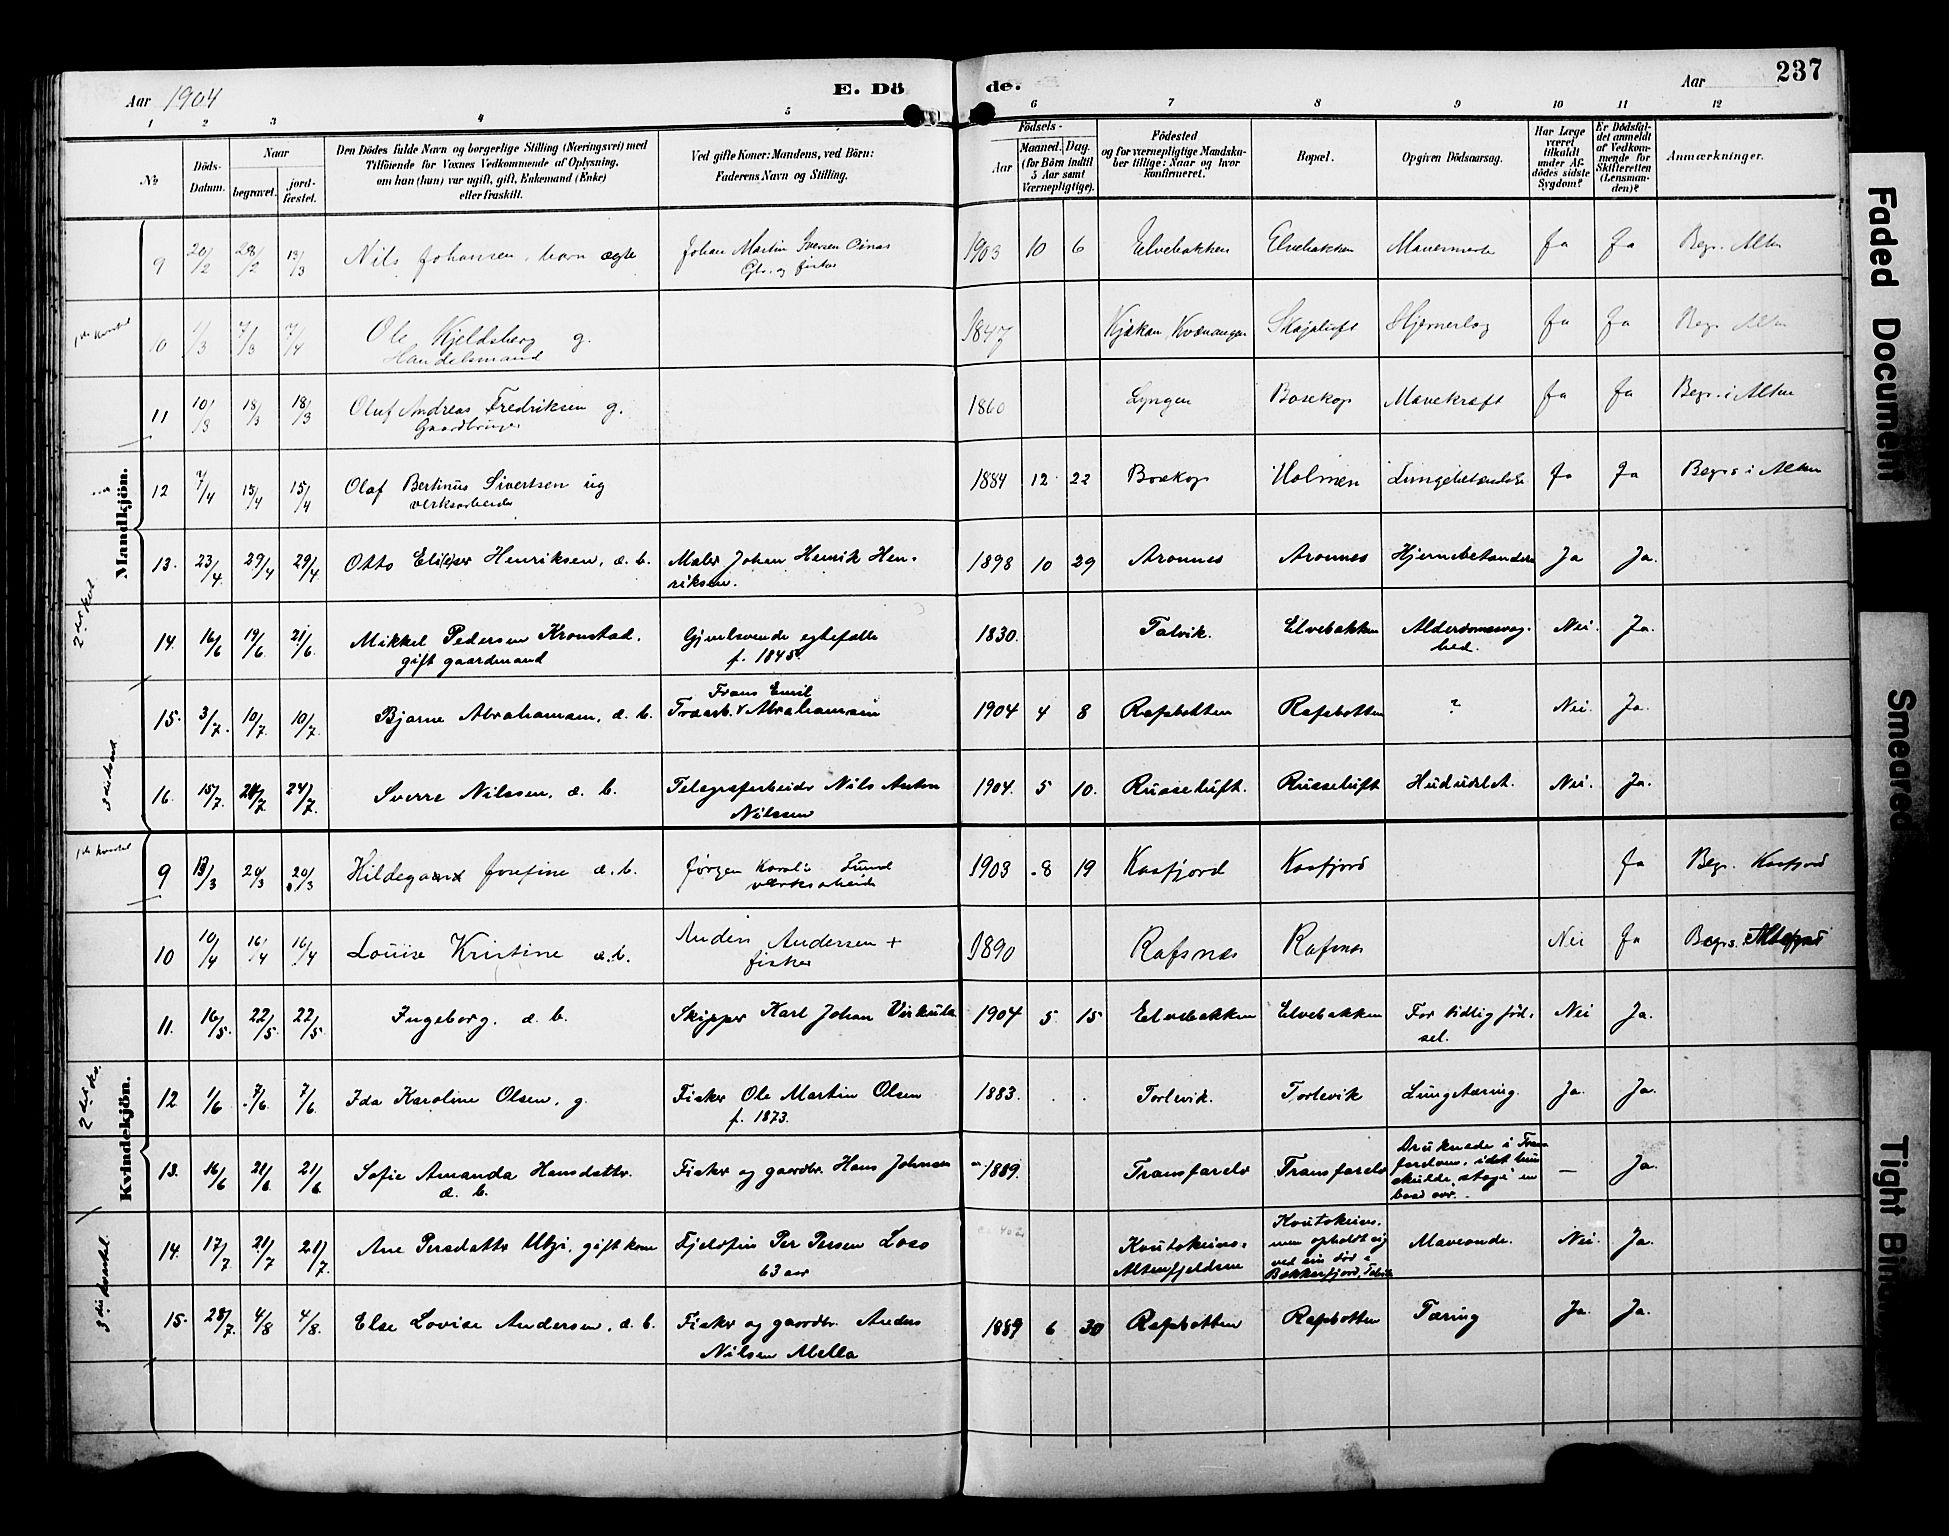 Aar 1904
E. Döde.
Aar
237
1 2 3 4 5 6 7 8 9 10 11 12
№
Döds-Datum.
Naar
begravet.
jord-fæstet.
Den Dödes fulde Navn og borgerlige Stilling (Næringsvei) med
Tilföiende for Voxnes Vedkommende af Oplysning,
om han (hun) var ugift, gift, Enkemand (Enke)
eller fraskilt.
Ved gifte Koner: Mandens, ved Börn:
Faderens Navn og Stilling.
Födsels-
Aar
Maaned. Dag.
(for Börn indtil
5 Aar samt
Værnepligtige).
Födested
og for værnepligtige Mandska-
ber tillige: Naar og hvor
konfirmeret.
Bopæl.
Opgiven Dödsaarsag.
Har Læge
været
tilkaldt
under Af-
dödes sidste
Sygdom?
Er Dödsfal-
det anmeldt
af Vedkom-
mende for
Skifteretten
(Lensman-
den)?
Anmærkninger.
Mandkjön.
9 20/2 28/2 13/3 Nils Johansen, barn ægte Johan Martin Iversen 1903 10 6 Elvebakken Elvebakken Ja Ja Begr. Alten
1ste kvartal
10 1/3 7/3 7/4 Ole Kjeldsberg g. 1847 Kjækan, Kvænangen Ja Ja Begr. Alten
Handelsmand
11 10/3 18/3 18/3 Oluf Andreas Fredriksen g. 1860 Lyngen Bosekop Mavekræft Ja Ja Begr. i Alten
Gaardbruger
12 7/4 15/4 15/4 Olaf Bertinus Sivertsen ug 1884 12 22 Bosekop Holmen Lungebetændelse Ja Ja Begr. i Alten
verksarbeider
13. 23/4. 29/4 29/4. Otto Henriksen, æ. b. Maler Johan Henrik Hen-
riksen. 1898 10 29 Aronnes Aronnes Hjernebetændelse Ja Ja.
14. 16/6 19/6. 21/6. Mikkel Pedersen Kronstad,
gift gaardmand
egtefælle
f. 1845. 1830. Talvik. Elvebakken Alderdomssvag-
hed. Nei. Ja.
15. 3/7. 10/7. 10/7. Bjarne Abrahamsen, æ. b. Frans Emil
Abrahamsen 1904 4 8 Rafsbotten Rafsbotten ? Nei. Ja.
16. 15/7. 24/7. Sverre Nilssen, æ. b. Telegrafarbeider Nils Anton
Nilssen 1904. 5 10. Russeluft. Russeluft Hududslet. Nei. Ja.
Kvindekjön.
1ste kvartal
9 13/3 20/3 20/3 Hildegard Josefine æ. b. Jørgen Lund
værksarbeider 1903 8 19 Kaafjord Kaafjord Ja Begr. Kaafjord
10 10/4 16/4 16/4 Louise Kristine æ. b. Anders Andersen +
fisker 1890 Rafsnæs Rafsnæs Nei Ja Begr.
11. 16/5 22/5 22/5. Ingeborg. æ. b. Skipper Karl Johan 1904 5. 15 Elvebakken Elvebakken For tidlig fød-
sel. Nei Ja.
12 1/6 7/6. 7/6 Ida Karoline Olsen, g. Fisker Ole Martin Olsen
f. 1873. 1883. Torlevik. Torlevik Lungetæring. Ja. Ja.
13. 16/6 21/6. 21/6 Sofie Amanda Hansdatter
æ. b. Fisker og gaardbr. Hans Johnsen 1889. Transfarelv Transfarelv Druknede i Trans-
farelven, idet hun
skulde stage en
baad over. — Ja.
14. 17/7 21/7 21/7. Ane Persdatter Utzi, gift kone Fjeldfin Per Persen
63 aar Koutokeino-
Altenfjeldene Koutokeino,
men opholdt sig
ved sin død i
Bakkerfjord, Talvik Maveonde. Nei. Ja.
15. 28/7. 4/8 4/8. Else Lovise Andersen, æ. b. Fisker og gaardbr. Anders
Nilsen Mella 1889 6 30 Rafsbotten Rafsbotten Tæring Ja. Ja.
Faded Document
Smeared
Tight